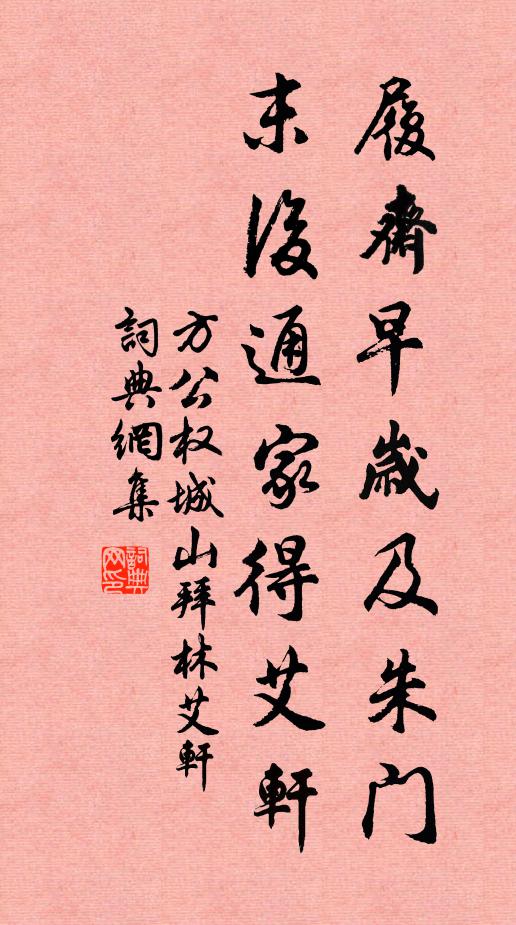 履齋早歲及朱門
末後通家得艾軒
方公权城山拜林艾軒
詞典網集
詞典
网印